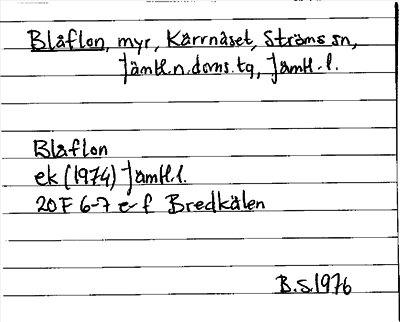 Blåflon, myr, Kärrnäset, Ströms sn,
Jämtl.n.doms.tg, Jämtl.l.
Blåflon
ek (1974) Jämtl.l.
20F 6-7 e-f Bredkälen
B.S.1976